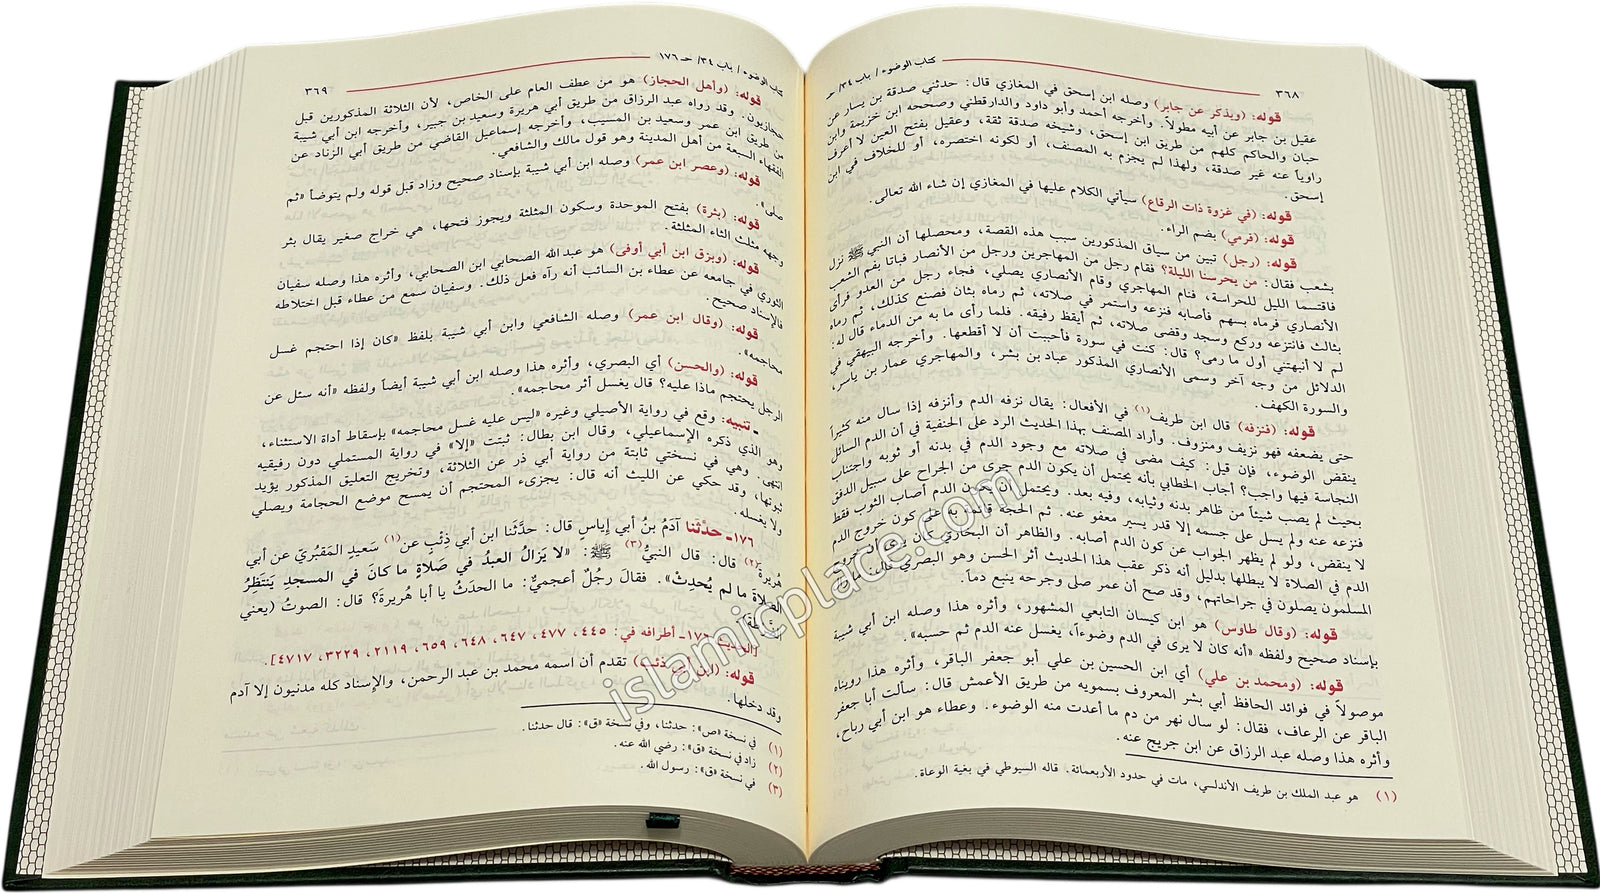 ٣٦٨
كتاب الوضوء / باب ٣٤/ حـ
قوله: (ويذكر عن جابر) وصله ابن إسحق في المغازي قال: حدثني صدقة بن يسار عن
عقيل بن جابر عن أبيه مطولاً. وأخرجه أحمد وأبو داود والدارقطني وصححه ابن خزيمة وابن
حبان والحاكم كلهم من طريق ابن إسحق، وشيخه صدقة ثقة، وعقيل بفتح العين لا أعرف
راوياً عنه غير صدقة، ولهذا لم يجزم به المصنف، أو لكونه اختصره، أو للخلاف في ابن
إسحق.
قوله: (في غزوة ذات الرقاع) سيأتي الكلام عليها في المغازي إن شاء الله تعالى.
قوله: (فرمي) بضم الراء.
قوله: (رجل) تبين من سياق المذكورين سبب هذه القصة، ومحصلها أن النبي ﷺ نزل
بشعب فقال: من يحرسنا الليلة؟ فقام رجل من المهاجرين ورجل من الأنصار فباتا بفم الشعب
فاقتسما الليل للحراسة، فنام المهاجري وقام الأنصاري يصلي، فجاء رجل من العدو فرأى
الأنصاري فرماه بسهم فأصابه فنزعه واستمر في صلاته، ثم رماه بثان فصنع كذلك، ثم رماه
بثالث فانتزعه وركع وسجد وقضى صلاته، ثم أيقظ رفيقه. فلما رأى ما به من الدماء قال له:
لم لا أنبهتني أول ما رمى؟ قال: كنت في سورة فأحببت أن لا أقطعها. وأخرجه البيهقي في
الدلائل من وجه آخر وسمى الأنصاري المذكور عباد بن بشر، والمهاجري عمار بن ياسر،
والسورة الكهف.
قوله: (فنزفه) قال ابن طريف(١) في الأفعال: يقال نزفه الدم وأنزفه إذا سال منه كثيراً
حتى يضعفه فهو نزيف ومنزوف. وأراد المصنف بهذا الحديث الرد على الحنفية في أن الدم السائل
ينقض الوضوء، فإن قيل: كيف مضى في صلاته مع وجود الدم في بدنه أو ثوبه واجتناب
النجاسة فيها واجب؟ أجاب الخطابي بأنه يحتمل أن يكون الدم جرى من الجراح على سبيل الدفق
بحيث لم يصب شيئاً من ظاهر بدنه وثيابه، وفيه بعد. ويحتمل أن يكون الدم أصاب الثوب فقط
فنزعه عنه ولم يسل على جسمه إلا قدر يسير معفو عنه. ثم الحجة قائمة به على كون خروج الدم
لا ينقض، ولو لم يظهر الجواب عن كون الدم أصابه. والظاهر أن البخاري كان يرى أن خروج
الدم في الصلاة لا يبطلها بدليل أنه ذكر عقب هذا الحديث أثر الحسن وهو البصري قال: ما زال
المسلمون يصلون في جراحاتهم، وقد صح أن عمر صلى وجرحه ينبع دماً.
قوله: (وقال طاوس) هو ابن كيسان التابعي المشهور، وأثره هذا وصله ابن أبي شيبة
بإسناد صحيح ولفظه «أنه كان لا يرى في الدم وضوءاً، يغسل عنه الدم ثم حسبه».
قوله: (ومحمد بن علي) أي ابن الحسين بن علي أبو جعفر الباقر، وأثره هذا رويناه
موصولاً في فوائد الحافظ أبي بشر المعروف بسمويه من طريق الأعمش قال: سألت أبا جعفر
الباقر عن الرعاف، فقال: لو سال نهر من دم ما أعدت منه الوضوء. وعطاء هو ابن أبي رباح،
وأثره هذا وصله عبد الرزاق عن ابن جريج عنه.
(١) هو عبد الملك بن طريف الأندلسي، مات في حدود الأربعمائة. قاله السيوطي في بغية الوعاة.
كتاب الوضوء / باب ٣٤/ حـ ١٧٦
٣٦٩
قوله: (وأهل الحجاز) هو من عطف العام على الخاص، لأن الثلاثة المذكورين قبل
حجازيون. وقد رواه عبد الرزاق من طريق أبي هريرة وسعيد بن جبير، وأخرجه ابن أبي شيبة
من طريق ابن عمر وسعيد بن المسيب، وأخرجه إسماعيل القاضي من طريق أبي الزناد عن
الفقهاء السبعة من أهل المدينة وهو قول مالك والشافعي.
قوله: (وعصر ابن عمر) وصله ابن أبي شيبة بإسناد صحيح وزاد قبل قوله ولم يتوضأ «ثم
صلى».
قوله: (بثرة) بفتح الموحدة وسكون المثلثة ويجوز فتحها، هي خراج صغير يقال بثر
وجهه مثلث الثاء المثلثة.
قوله: (وبزق ابن أبي أوفى) هو عبد الله الصحابي ابن الصحابي، وأثره هذا وصله سفيان
الثوري في جامعه عن عطاء بن السائب أنه رآه فعل ذلك. وسفيان سمع من عطاء قبل اختلاطه
فالإسناد صحيح.
قوله: (وقال ابن عمر) وصله الشافعي وابن أبي شيبة بلفظ «كان إذا احتجم غسل
محاجمه».
قوله: (والحسن) أي البصري، وأثره هذا وصله ابن أبي شيبة أيضاً ولفظه «أنه سئل عن
الرجل يحتجم ماذا عليه؟ قال يغسل أثر محاجمه»
ـ تنبيه: وقع في رواية الأصيلي وغيره «ليس عليه غسل محاجمه» بإسقاط أداة الاستثناء،
وهو الذي ذكره الإسماعيلي، وقال ابن بطال: ثبتت «إلا» في رواية المستملي دون رفيقيه
انتهى. وهي في نسختي ثابتة من رواية أبي ذر عن الثلاثة، وتخريج التعليق المذكور يؤيد
ثبوتها، وقد حكي عن الليث أنه قال: يجزىء المحتجم أن يمسح موضع الحجامة ويصلي
ولا يغسله.
١٧٦ـ حدثنا آدَمُ بنُ أبي إياسٍ قال: حدَّثَنا ابن أبي ذِئْبٍ عن(١) سَعيدٍ المَقبُريِّ عن أبي
هُريرةَ(٢) قال: قال النبيُّ(٣) ﷺ: «لا يَزالُ العبدُ في صَلاةٍ ما كانَ في المسجدِ يَنتظِرُ
الصلاةَ ما لم يُحدِثْ». فقالَ رجُلٌ أعجميٌّ: ما الحدَثُ يا أبا هُريرةَ؟ قال: الصوتُ (يعني
الضَّرطةَ).
[الحديث ١٧٦ـ أطرافه في: ٤٤٥، ٤٧٧، ٦٤٧، ٦٤٨، ٦٥٩، ٢١١٩، ٣٢٢٩، ٤٧١٧].
قوله: (ابن أبي ذئب) تقدم أن اسمه محمد بن عبد الرحمن، والإسناد كله مدنيون إلا آدم
وقد دخلها.
(١) في نسخة «ص»: حدثنا، وفي نسخة «ق»: قال حدثنا.
(٢) زاد في نسخة «ق»: رضي الله عنه.
(٣) في نسخة «ق»: رسول الله.
islamicplace.com